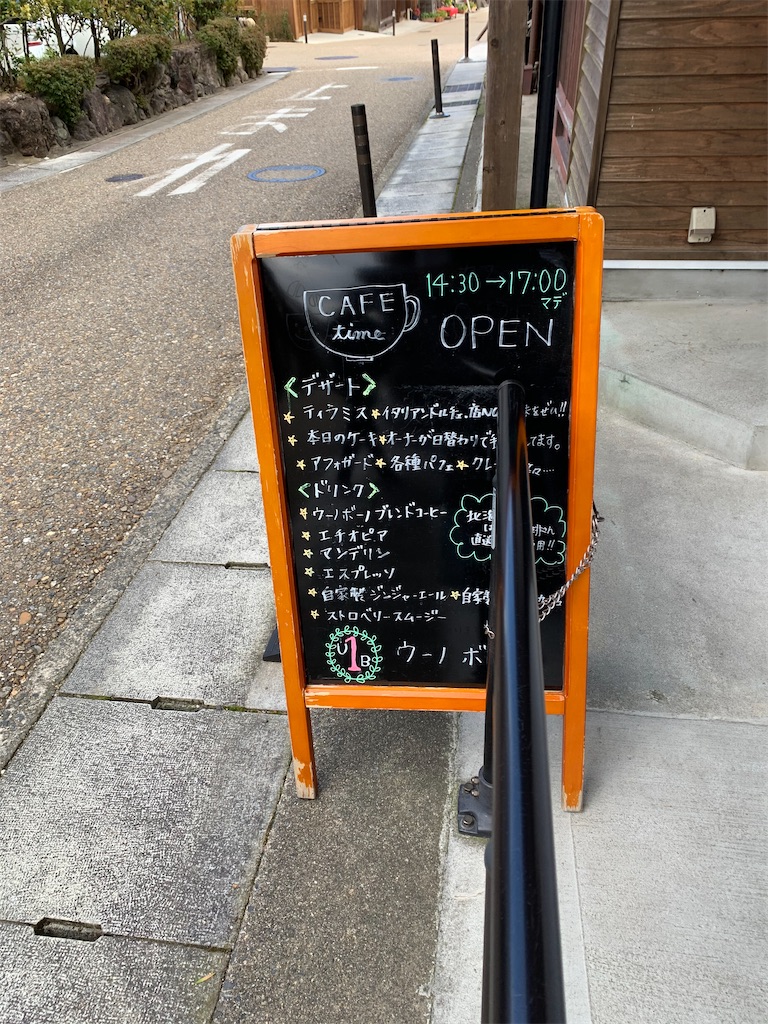 CAFE
time
14:30→17:00
マデ
OPEN
<デザート>
☆ティラミス☆イタリアンドルチェ、店NO を ぜひ!!
☆本日のケーキ☆オーナーが日替わりで手 してます。
☆アフォガード☆各種パフェ☆クレー
<ドリンク>
☆ウーノボーノブレンドコーヒー
☆エチオピア
☆マンデリン
☆エスプレッソ
☆自家製ジンジャーエール☆自家
☆ストロベリースムージー
北海
は
直送
用!!
U1B
ウーノ ボ